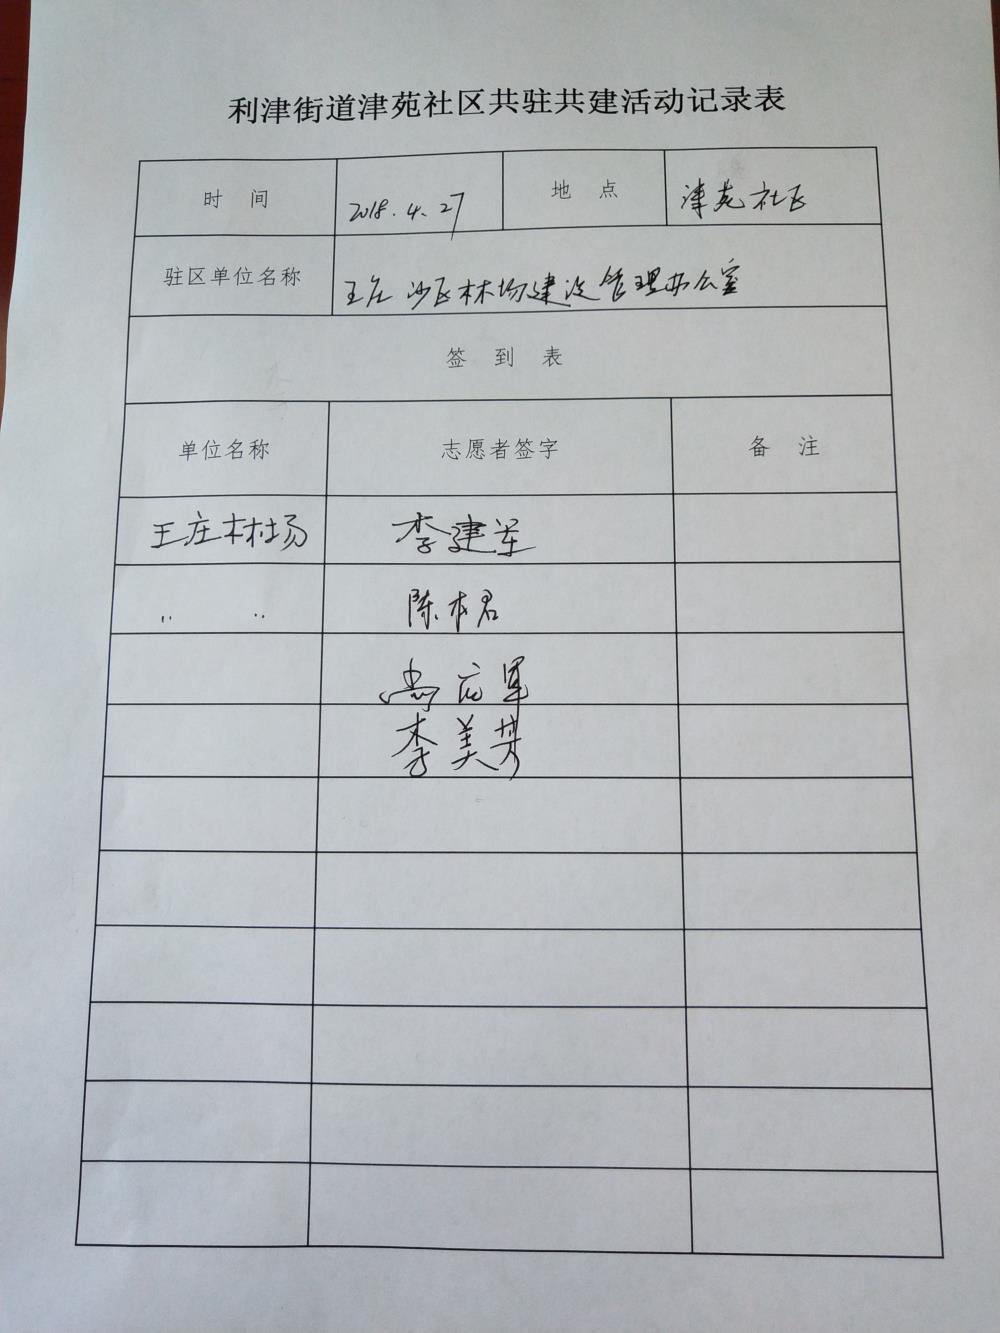 利津街道津苑社区共驻共建活动记录表
时 间 2018.4.27 地 点 津苑社区
驻区单位名称 王庄沙区林场建设管理办公室
签 到 表
单位名称 志愿者签字 备 注
王庄林场 李建军
〃 〃 陈本君
尚应军
李美芳